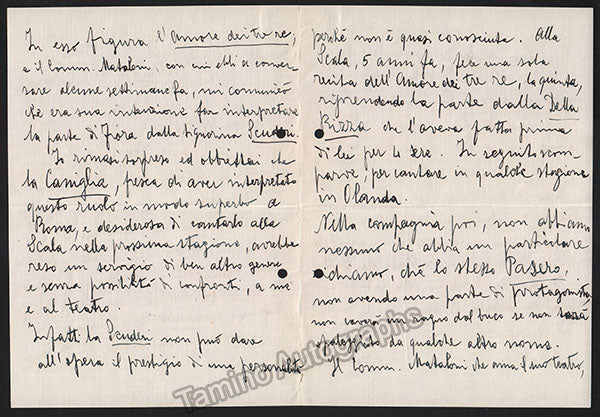 In esso figura l'Amore dei tre re,
e il Comm. Mataloni, con cui ebbi a conver-
sare alcune settimane fa, mi comunicò
che era sua intenzione far interpretare
la parte di Fiora dalla signorina Scuderi.
Io rimasi sorpreso ed obbiettai che
la Caniglia, fresca di aver interpretato
questo ruolo in modo superbo a
Roma, e desiderosa di cantarlo alla
Scala nella prossima stagione, avrebbe
reso un servigio di ben altro genere
e senza possibilità di confronti, a me
e al teatro.
Infatti la Scuderi non può dare
all'opera il prestigio di una personalità
perché non è quasi conosciuta. Alla
Scala, 5 anni fa, fece una sola
recita dell'Amore dei tre re, la quinta,
riprendendo la parte dalla Dalla
Rizza che l'aveva fatta prima
di lei per 4 sere. In seguito scom-
parve, per cantare in qualche stagione
in Olanda.
Nella compagnia poi, non abbiamo
nessuno che abbia un particolare
richiamo, chè lo stesso Pasero,
non avendo una parte di protagonista
non caverà un ragno dal buco se non sarà
spalleggiato da qualche altro nome.
Il Comm. Mataloni che ama il suo teatro,
Tamino Autographs